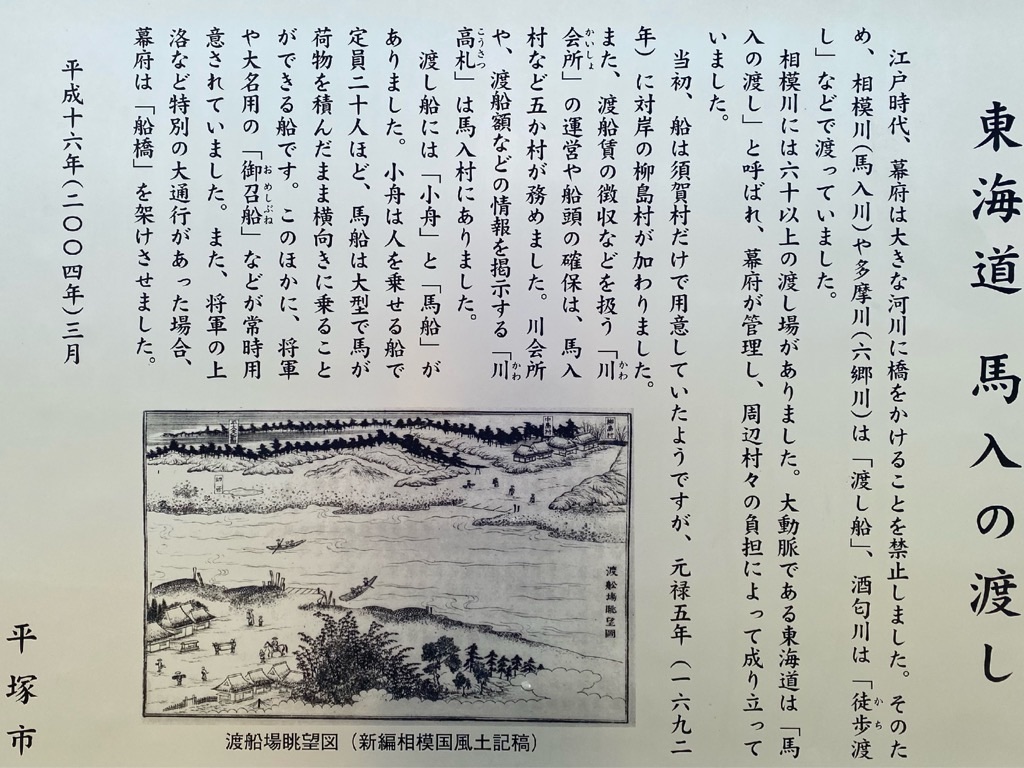 東海道 馬入の渡し
江戸時代、幕府は大きな河川に橋をかけることを禁止しました。そのた
め、相模川（馬入川）や多摩川（六郷川）は「渡し船」、酒匂川は「徒歩渡
かち
し」などで渡っていました。
相模川には六十以上の渡し場がありました。大動脈である東海道は「馬
入の渡し」と呼ばれ、幕府が管理し、周辺村々の負担によって成り立って
いました。
当初、船は須賀村だけで用意していたようですが、元禄五年（一六九二
年）に対岸の柳島村が加わりました。
また、渡船賃の徴収などを扱う「川
かわ
会所」の運営や船頭の確保は、馬入
かいしょ
村など五か村が務めました。川会所
や、渡船額などの情報を掲示する「川
かわ
高札」は馬入村にありました。
こうさつ
渡し船には「小舟」と「馬船」が
ありました。小舟は人を乗せる船で
定員二十人ほど、馬船は大型で馬が
荷物を積んだまま横向きに乗ること
ができる船です。このほかに、将軍
や大名用の「御召船」などが常時用
おめしぶね
意されていました。また、将軍の上
洛など特別の大通行があった場合、
幕府は「船橋」を架けさせました。
平成十六年（二〇〇四年）三月
平塚市
渡船場眺望圖
渡船場眺望図（新編相模国風土記稿）